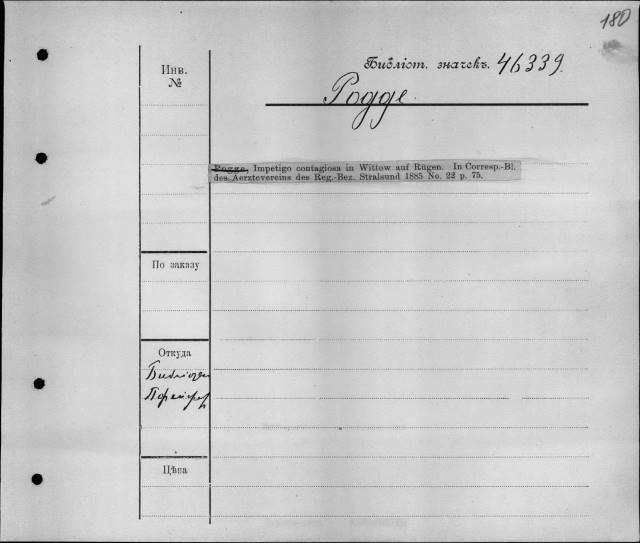 180
Библiот. значекъ. 46339.
Инв.
№
Pogge.
Pogge, Impetigo contagiosa in Wittow auf Rügen. In Corresp.-Bl.
des Aerztevereins des Reg.-Bez. Stralsund 1885 No. 22 p. 75.
По заказу
Откуда
Цѣна